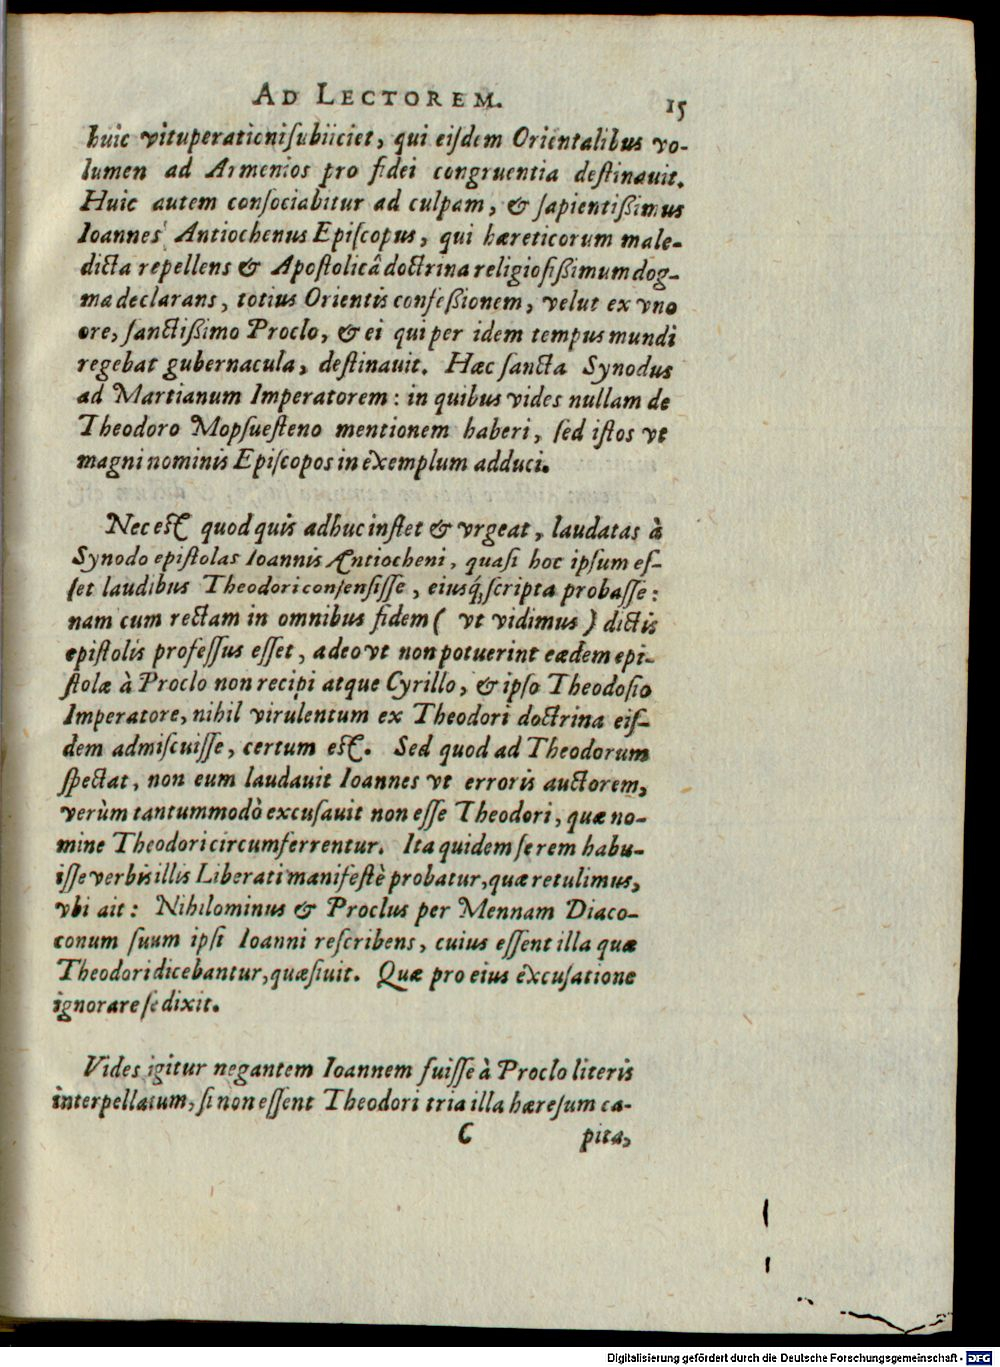 AD LECTOREM. 15
huic vituperationi subiiciet, qui eisdem Orientalibus vo-
lumen ad Armenios pro fidei congruentia destinauit.
Huic autem consociabitur ad culpam, & sapientißimus
Ioannes Antiochenus Episcopus, qui hæreticorum male-
dicta repellens & Apostolicâ doctrina religiosißimum dog-
ma declarans, totius Orientis confeßionem, velut ex vno
ore, sanctißimo Proclo, & ei qui per idem tempus mundi
regebat gubernacula, destinauit. Hæc sancta Synodus
ad Martianum Imperatorem: in quibus vides nullam de
Theodoro Mopsuesteno mentionem haberi, sed istos vt
magni nominis Episcopos in exemplum adduci.
Nec est quod quis adhuc instet & vrgeat, laudatas à
Synodo epistolas Ioannis Antiocheni, quasi hoc ipsum es-
set laudibus Theodori consensisse, eiusq́; scripta probasse:
nam cum rectam in omnibus fidem ( vt vidimus ) dictis
epistolis professus esset, adeo vt non potuerint eædem epi-
stolæ à Proclo non recipi atque Cyrillo, & ipso Theodosio
Imperatore, nihil virulentum ex Theodori doctrina eis-
dem admiscuisse, certum est. Sed quod ad Theodorum
spectat, non eum laudauit Ioannes vt erroris auctorem,
verùm tantummodò excusauit non esse Theodori, quæ no-
mine Theodori circumferrentur. Ita quidem se rem habu-
isse verbis illis Liberati manifestè probatur, quæ retulimus,
vbi ait: Nihilominus & Proclus per Mennam Diaco-
conum suum ipsi Ioanni rescribens, cuius essent illa quæ
Theodori dicebantur, quæsiuit. Quæ pro eius excusatione
ignorare se dixit.
Vides igitur negantem Ioannem fuisse à Proclo literis
interpellatum, si non essent Theodori tria illa hæresum ca-
C pita,
Digitalisierung gefördert durch die Deutsche Forschungsgemeinschaft - DFG